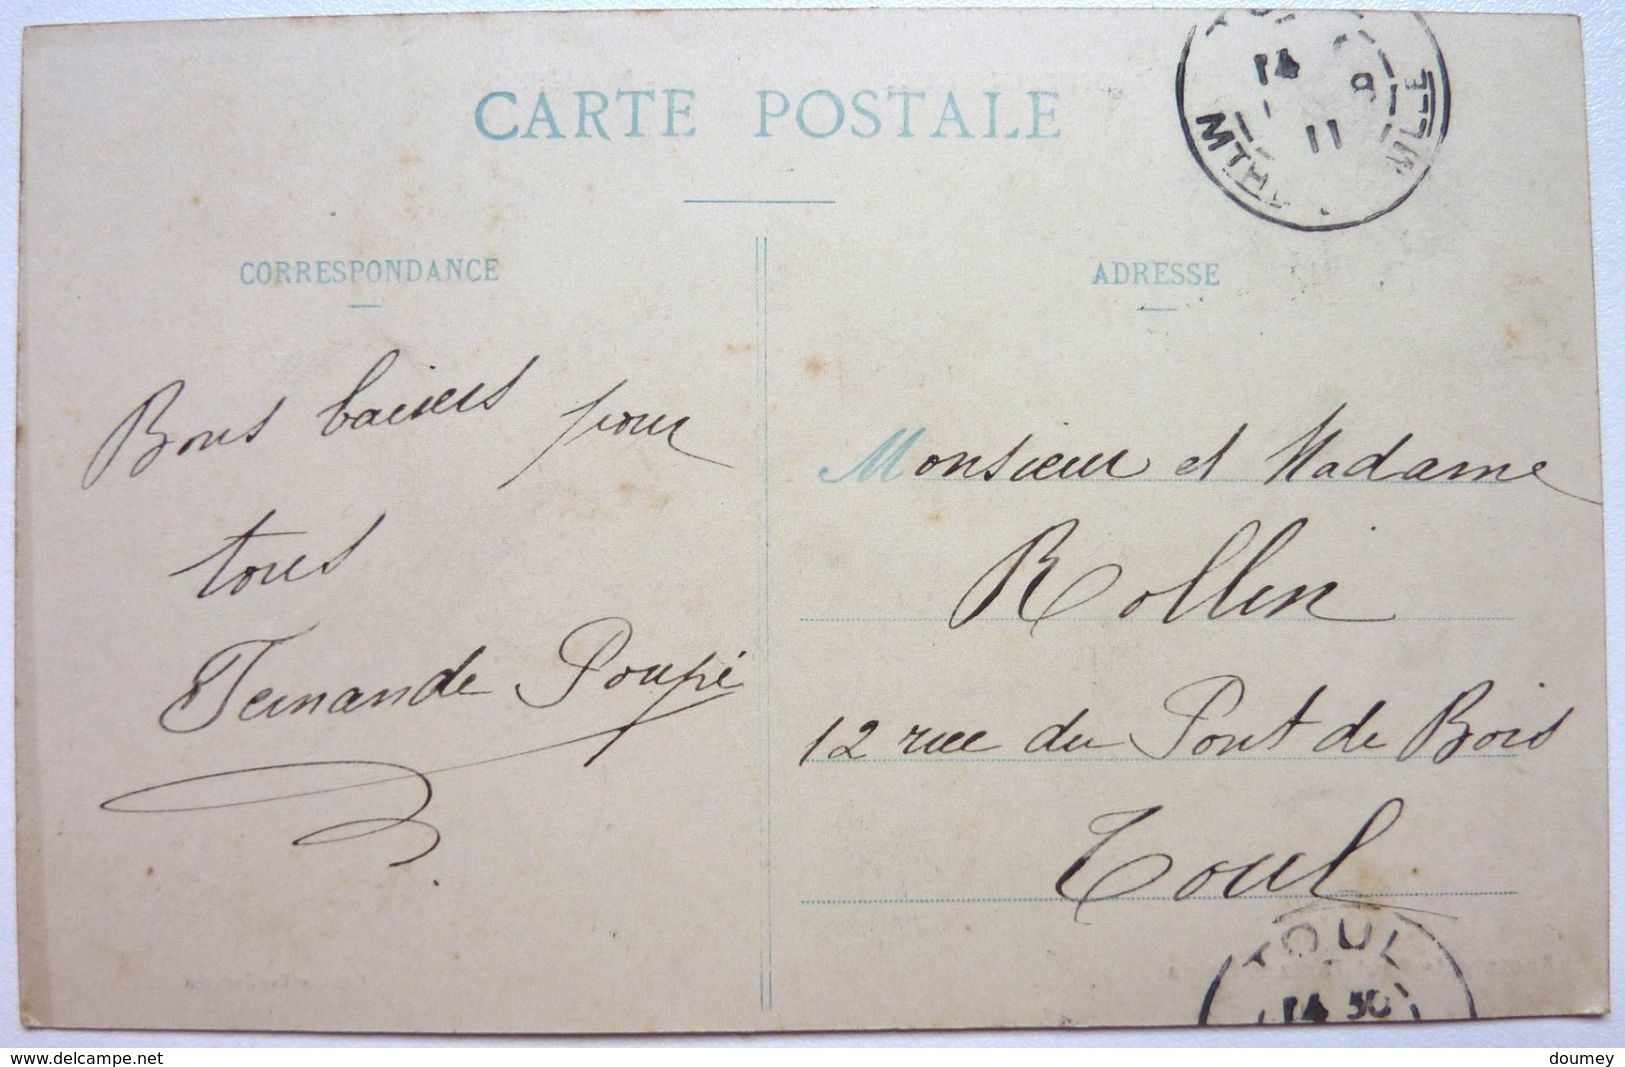 CARTE POSTALE
14
11
MLLE
CORRESPONDANCE
ADRESSE
Bons baisers pour
tous
Fernande Poupé
Monsieur et Madame
Rollin
12 rue du Pont de Bois
Toul
TOUL
14
www.delcampe.net
doumey